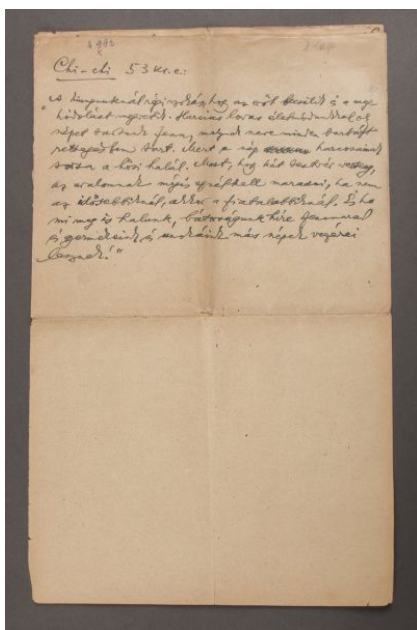 Chi-chi 53 Kr. e.:
"A hunyunknál régi szokás, hogy az erőt becsülik és a meg-
hódolást megvetik. Harcias lovas életmódunkkal oly
népet tartunk fenn, melynek neve minden barbárt
rettegésben tart. Mert a nép harcosainak
sorsa a hősi halál. Most, hogy két testvér verseng,
az uralomnak mégis nálunk kell maradni, ha nem
az idősebbiknél, akkor a fiatalabbiknál. És ha
mi meg is halunk, bátorságunk híre fennmarad
és gyermekeink és unokáink más népek vezérei
lesznek!"